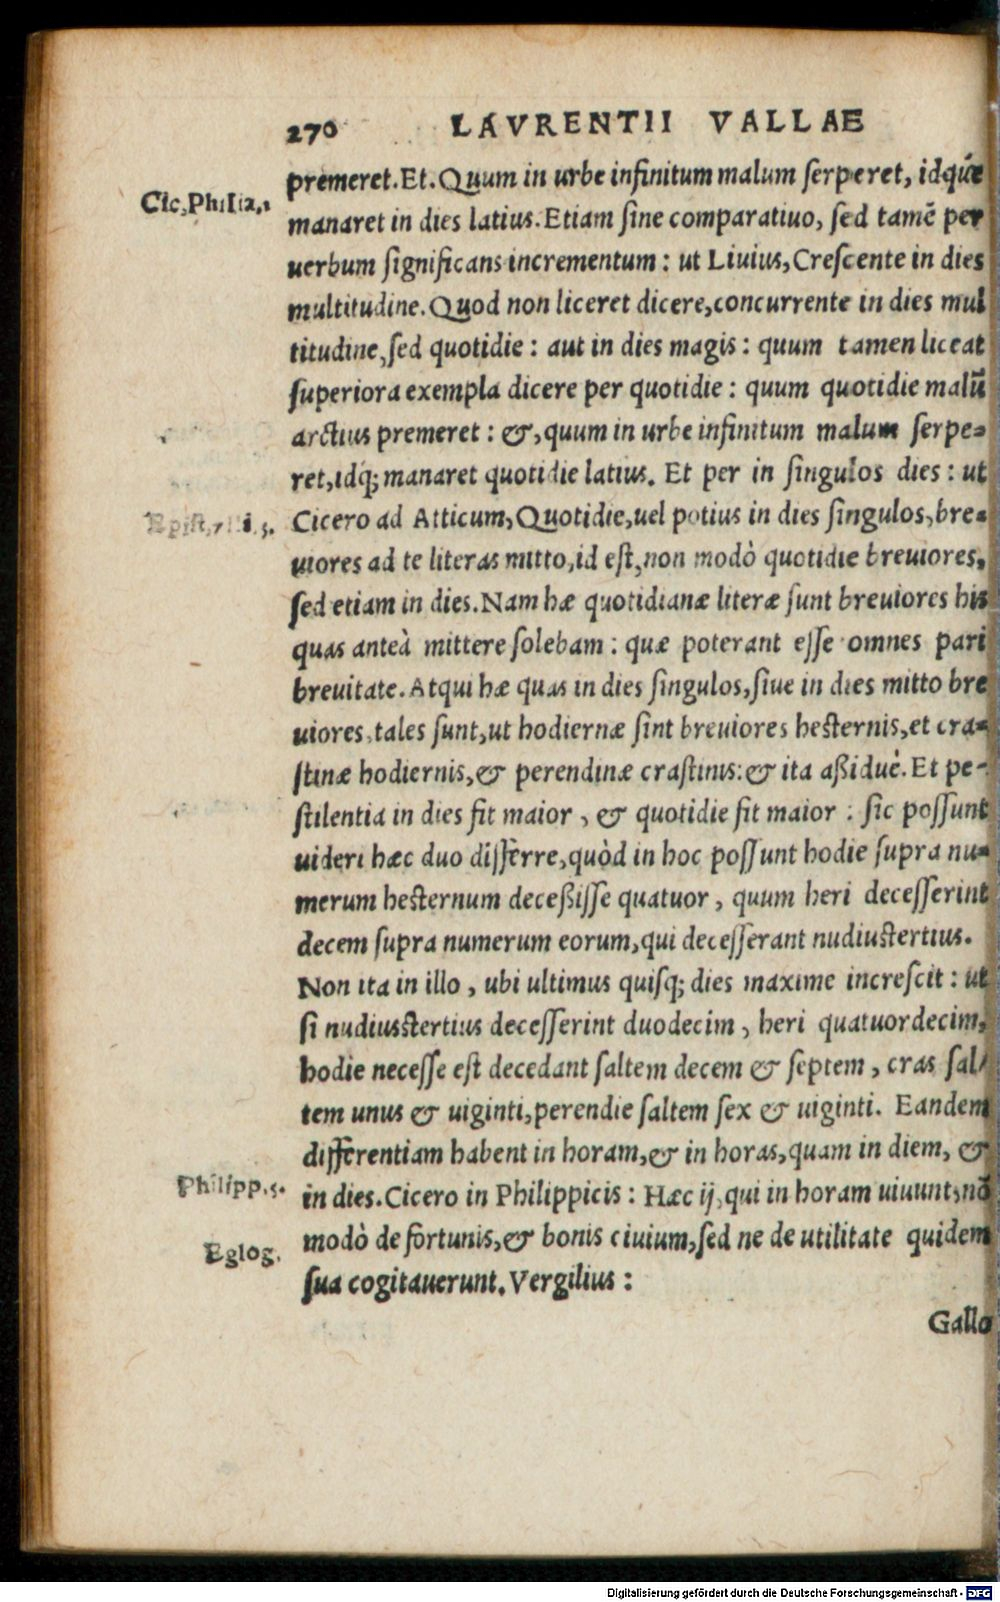 270 LAVRENTII VALLAE
premeret. Et. Quum in urbe infinitum malum serperet, idq́ue
Cic, Phili
manaret in dies latius. Etiam sine comparatiuo, sed tamē per
uerbum significans incrementum: ut Liuius, Crescente in dies
multitudine. Quod non liceret dicere, concurrente in dies mul
titudine, sed quotidie: aut in dies magis: quum tamen liceat
superiora exempla dicere per quotidie: quum quotidie malū
arctius premeret: &, quum in urbe infinitum malum serpe-
ret, idq; manaret quotidie latius. Et per in singulos dies: ut
Cicero ad Atticum, Quotidie, uel potius in dies singulos, bre-
uiores ad te literas mitto, id est, non modò quotidie breuiores,
sed etiam in dies. Nam hæ quotidianæ literæ sunt breuiores his
quas anteà mittere solebam: quæ poterant esse omnes pari
breuitate. Atqui hæ quas in dies singulos, siue in dies mitto bre
uiores, tales sunt, ut hodiernæ sint breuiores hesternis, et cra-
stinæ hodiernis, & perendinæ crastinis: & ita aßiduè. Et pe-
stilentia in dies fit maior, & quotidie fit maior: sic possunt
uideri hæc duo differre, quòd in hoc possunt hodie supra nu-
merum hesternum deceßisse quatuor, quum heri decesserint
decem supra numerum eorum, qui decesserant nudiustertius.
Non ita in illo, ubi ultimus quisq; dies maxime increscit: ut
si nudiusstertius decesserint duodecim, heri quatuordecim,
hodie necesse est decedant saltem decem & septem, cras sal/
tem unus & uiginti, perendie saltem sex & uiginti. Eandem
differentiam habent in horam, & in horas, quam in diem, &
Philipp.5.
in dies. Cicero in Philippicis: Hæc ij, qui in horam uiuunt, nō
Eglog.
modò de fortunis, & bonis ciuium, sed ne de utilitate quidem
sua cogitauerunt. Vergilius:
Gallo
Digitalisierung gefördert durch die Deutsche Forschungsgemeinschaft - DFG